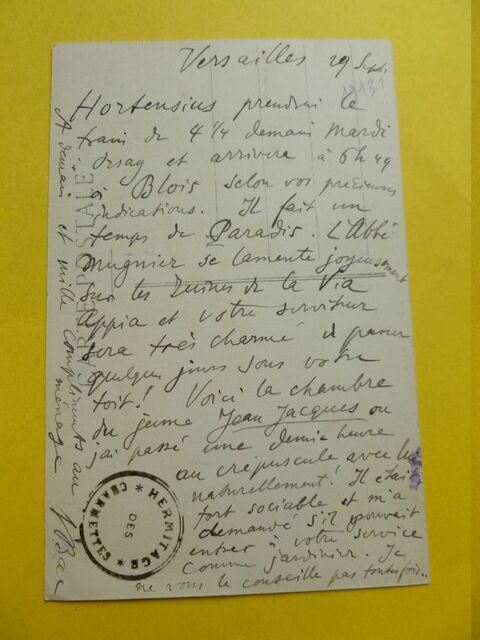 Versailles 29 Sept.
1913
Hortensius prendrai le
train de 4 1/4 demain mardi
orsay et arrivera à 6h 49
à Blois selon vos précieuses
indications. Il fait un
temps de Paradis. L'Abbé
Mugnier se lamente joyeusement
sur les ruines de la Via
Appia et votre serviteur
sera très charmé de passer
quelques jours sous votre
toit! Voici la chambre
du jeune Jean Jacques ou
j'ai passé une demie heure
au crépuscule avec lui
naturellement! Il était
fort sociable et m'a
demandé s'il pouvait
entrer à votre service
comme jardinier. Je
ne vous le conseille pas toutefois..
A demain et mille compliments au
ménage
J Bac
CARTE POSTALE
* HERMITAGE *
DES
CHARMETTES